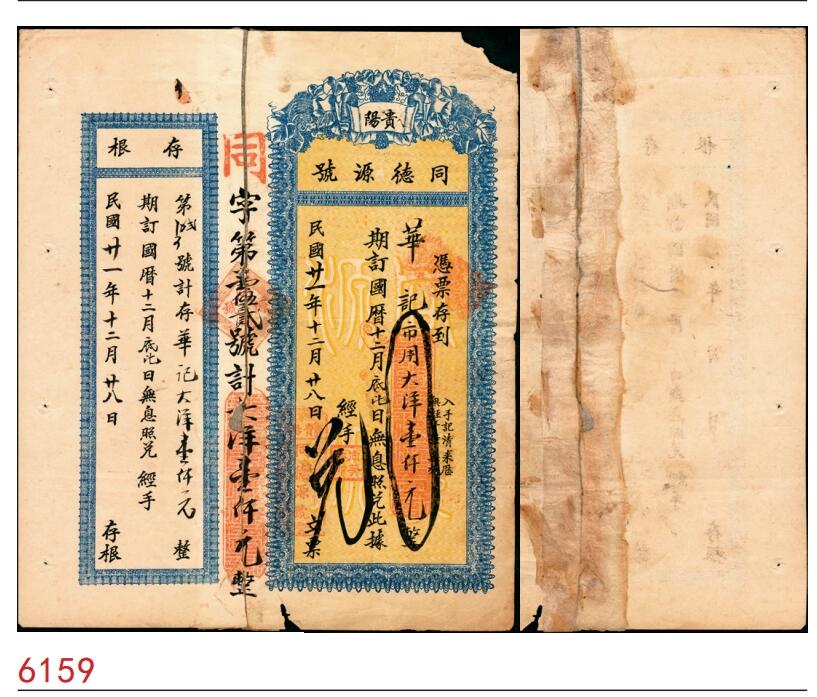 貴陽
同德源號
憑票存到
華記市用大洋壹仟元整
期訂國曆十二月底比日無息照兌此據
入手記清來歷
經手
兌
民國廿一年十二月廿八日
立票
同
字第壹伍貳號計大洋壹仟元整
存根
號計存華記大洋壹仟元整
期訂國曆十二月底比日無息照兌
經手
民國廿一年十二月廿八日
存根
6159